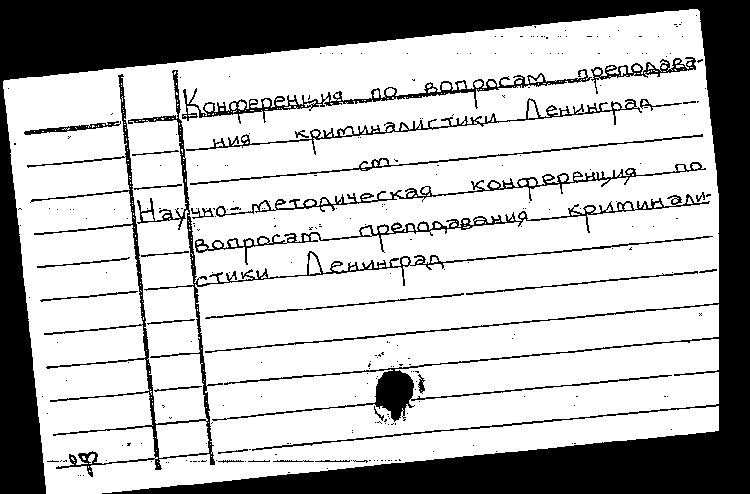 Конференция по вопросам преподава-
ния криминалистики Ленинград
см.
Научно-методическая конференция по
вопросам преподавания криминали-
стики Ленинград